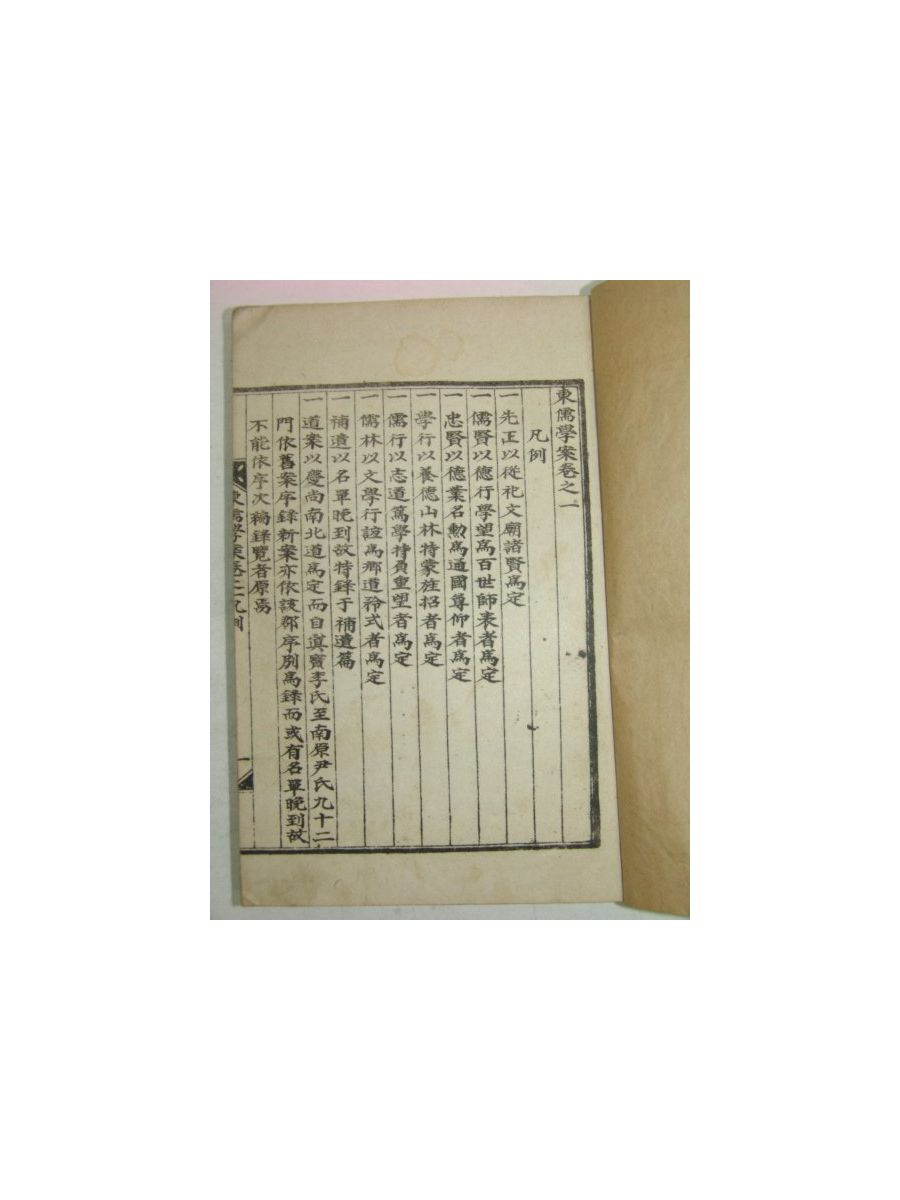 東儒學案卷之一
凡例
一先正以從祀文廟諸賢爲定
一儒賢以德行學望爲百世師表者爲定
一忠賢以德業名勳爲通國尊仰者爲定
一學行以養德山林特蒙旌招者爲定
一儒行以志道篤學持負重望者爲定
一儒林以文學行誼爲鄕道矜式者爲定
一補遺以名單晩到故特錄于補遺篇
一道案以慶尙南北道爲定而自眞寶李氏至南原尹氏九十二
門依舊案序錄新案亦依該郡序別爲錄而或有名單晩到故
不能依序次編錄覽者原焉
東儒學案卷之一凡例
一